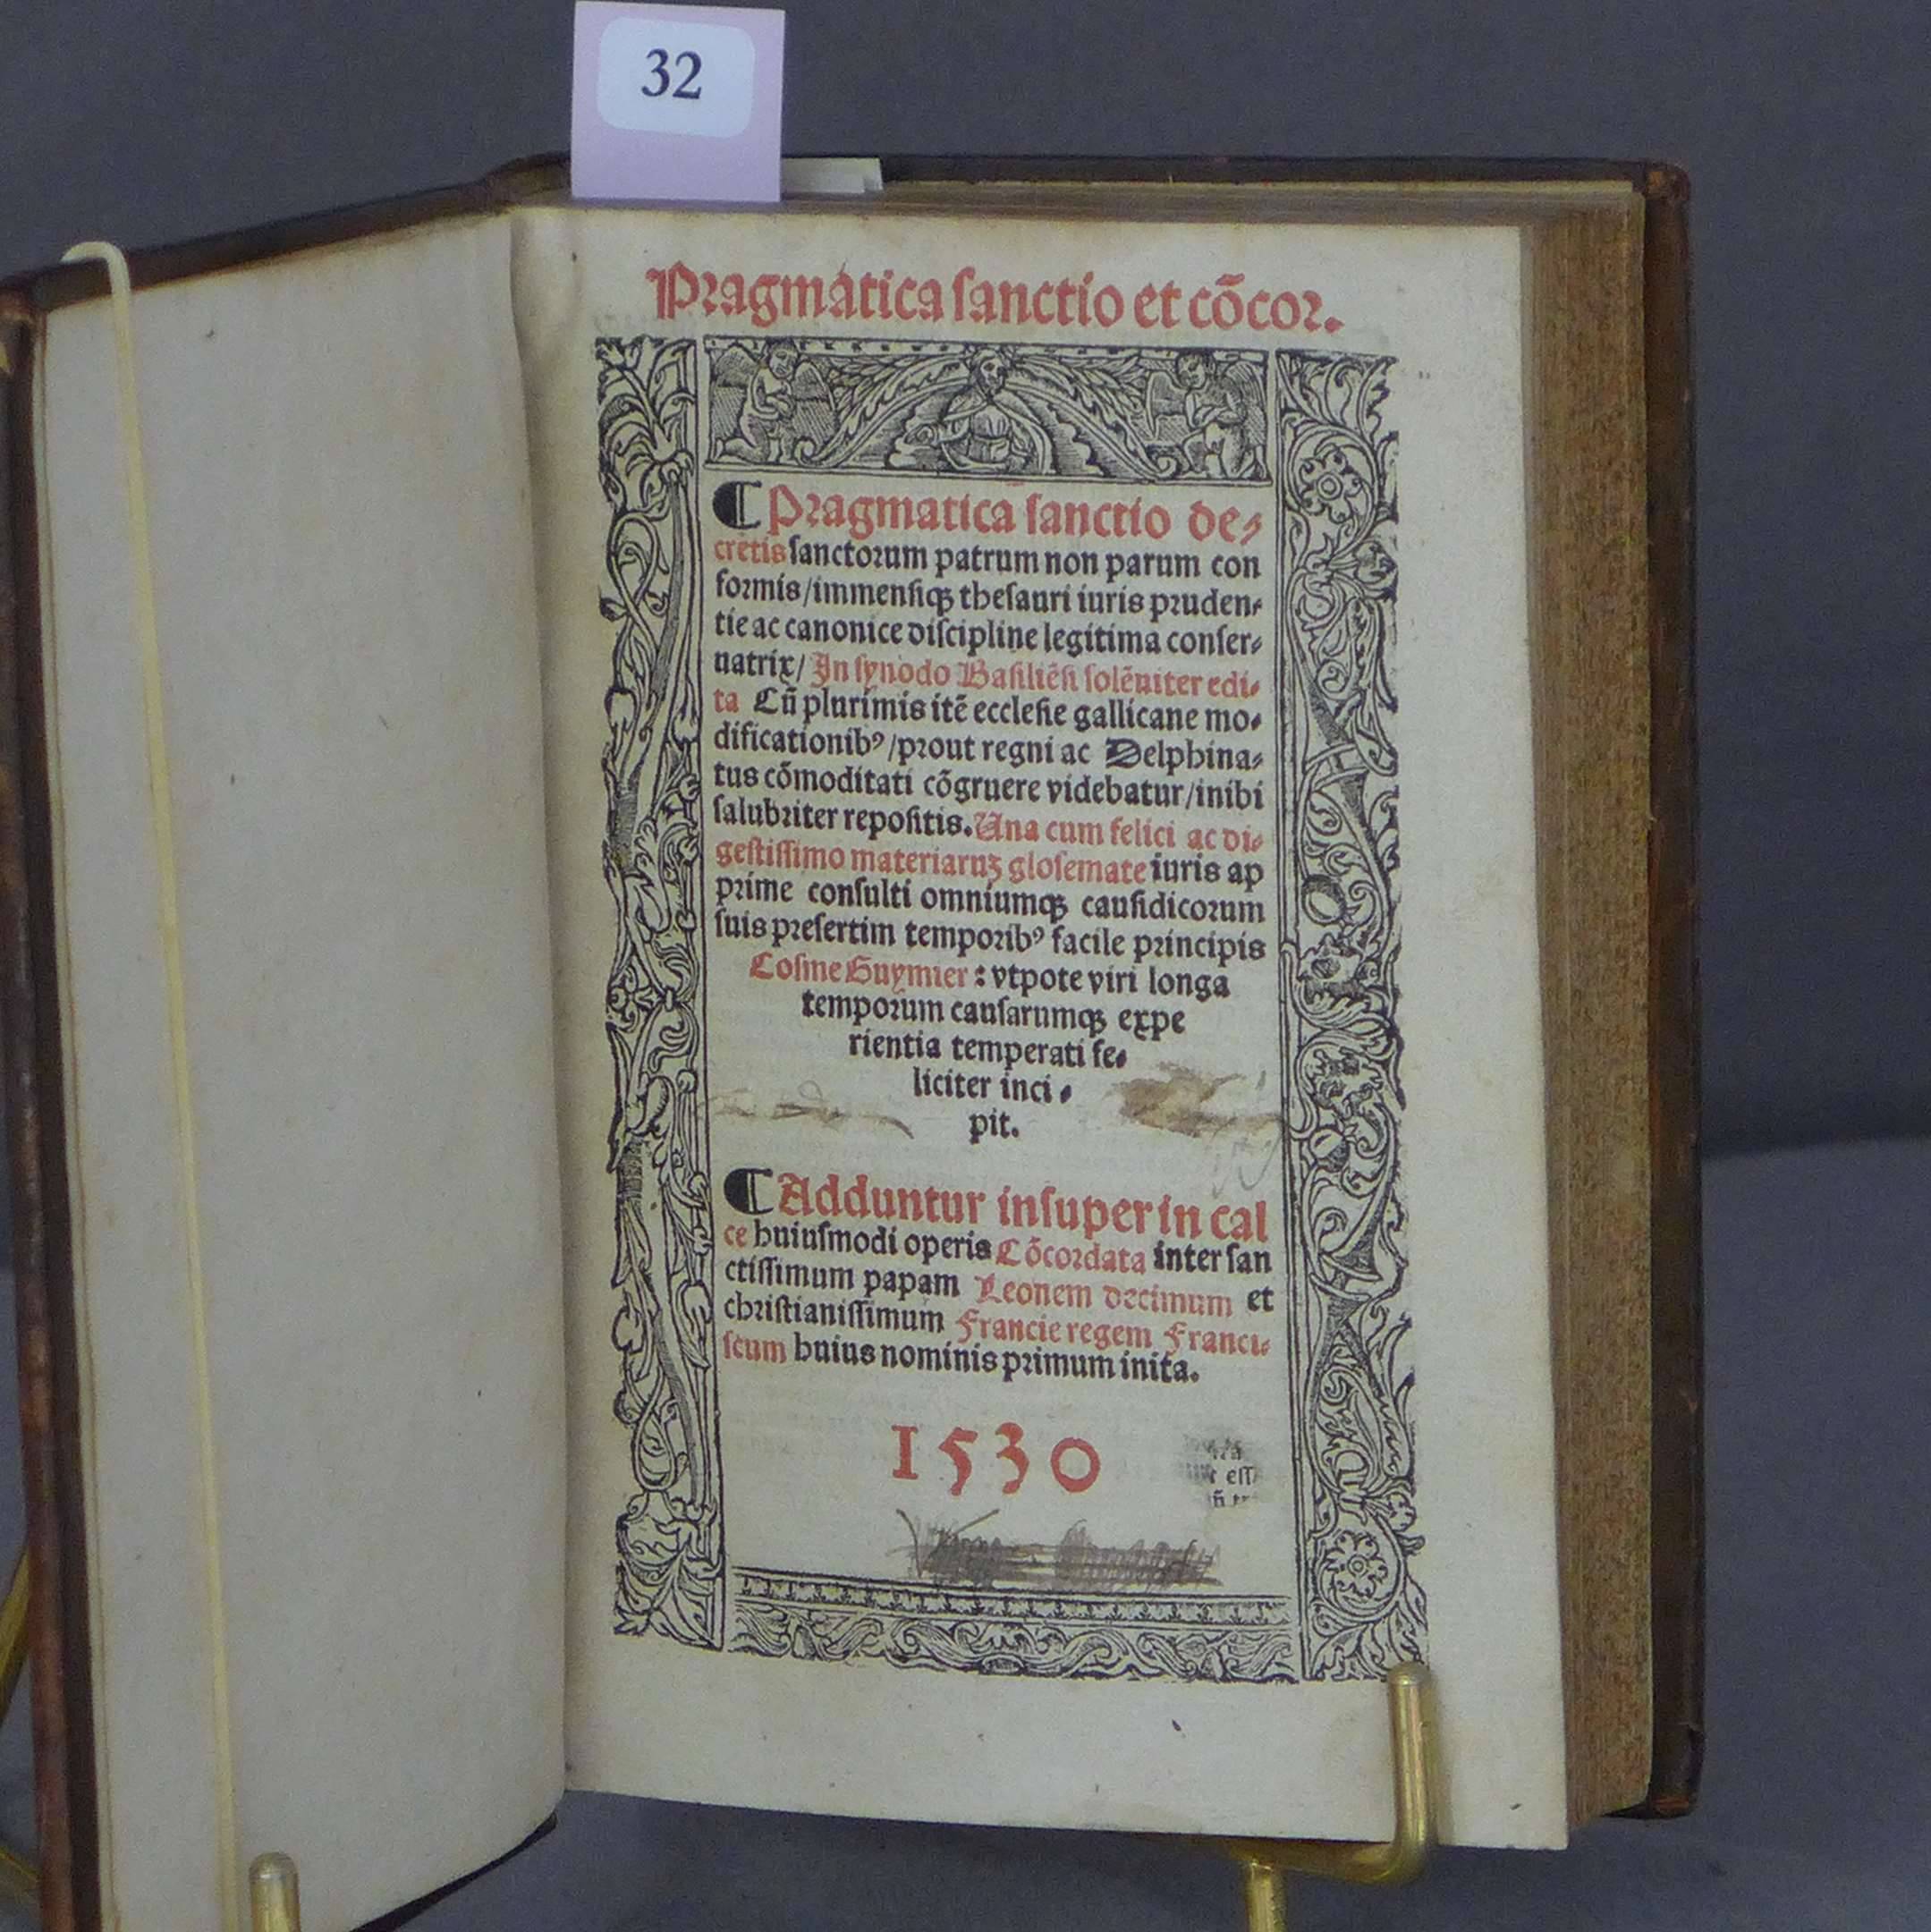 32
Pragmatica sanctio et cõcor.
⸿ Pragmatica sanctio de⸗
cretis sanctorum patrum non parum con
formis/immensiqꝫ thesauri iuris pruden⸗
tie ac canonice discipline legitima conser⸗
uatrix/ In synodo Basiliẽsi solẽniter edi⸗
ta Cũ plurimis itẽ ecclesie gallicane mo⸗
dificationibꝰ/prout regni ac Delphina⸗
tus cõmoditati cõgruere videbatur/inibi
salubriter repositis. Una cum felici ac di⸗
gestissimo materiaruꝫ glosemate iuris ap
prime consulti omniumqꝫ causidicorum
suis presertim temporibꝰ facile principis
Cosme Guymier : vtpote viri longa
temporum causarumqꝫ expe
rientia temperati fe⸗
liciter inci⸗
pit.
⸿ Adduntur insuper in cal
ce huiusmodi operis Cõcordata inter san
ctissimum papam Leonem decimum et
christianissimum Francie regem Franci⸗
scum huius nominis primum inita.
1530